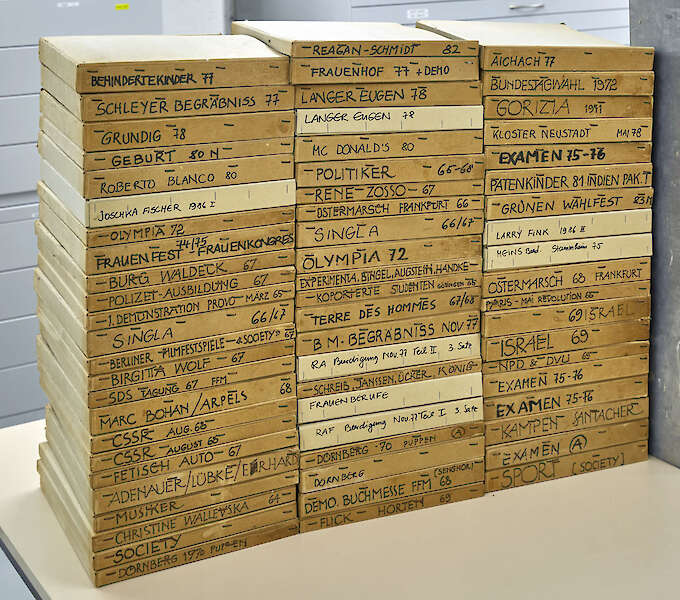 BEHINDERTEKINDER 77
SCHLEYER BEGRÄBNISS 77
GRUNDIG 78
GEBURT 80 N
ROBERTO BLANCO 80
JOSCHKA FISCHER 1986 I
OLYMPIA 72
74/75
FRAUENFEST - FRAUENKONGRESS
BURG WALDECK 67
POLIZEI-AUSBILDUNG 67
1. DEMONSTRATION PROVO - MÄRZ 65
SINGLA 66/67
BERLINER FILMFESTSPIELE - &SOCIETY 67
BIRGITTA WOLF - 67
SDS TAGUNG 67 FFM
MARC BOHAN/ARPELS 68
CSSR AUG. 68
CSSR AUGUST 68
FETISCH AUTO - 67
ADENAUER/LÜBKE/ERHARD
MUSIKER
CHRISTINE WALLEVSKA 64
SOCIETY
DORNBERG 1970 PUPPEN
REAGAN-SCHMIDT 82
FRAUENHOF 77 + DEMO
LANGER EUGEN 78
LANGER EUGEN 78
MC DONALD'S 80
POLITIKER 65-68
RENE ZOSSO - 67
OSTERMARSCH FRANKFURT 66
SINGLA 66/67
OLYMPIA 72
EXPERIMENTA, BINGEL, AUGSTEIN, HANDKE
KOPORIERTE STUDENTEN
TERRE DES HOMMES 67/68
B.M. BEGRÄBNISS NOV 77
RA Beerdigung Nov. 77 Teil II 3. Satz
SCHREIB, JANSSEN, ÜCKER, KÖNIG
FRAUENBERUFE
RAF Beerdigung Nov. 77 Teil I 3. Satz
DORNBERG '70 PUPPEN (A)
DORNBERG
DEMO. BUCHMESSE FFM (SENGHOR) 68
FLICK HORTEN 69
AICHACH 77
BUNDESTAGWAHL 1972
GORIZIA 1971
KLOSTER NEUSTADT MAI 78
EXAMEN 75-76
PATENKINDER 81 INDIEN PAK.T
GRÜNEN WAHLFEST 83 M
LARRY FINK 1986 II
MEINS Bad. Stammheim 75
OSTERMARSCH 68 FRANKFURT
PARIS - MAI REVOLUTION 68
69 ISRAEL
ISRAEL 69
NPD & DVU 65
EXAMEN 75-76
EXAMEN 75-76
KAMPEN SANTACHER
EXAMEN (A)
SPORT (SOCIETY)